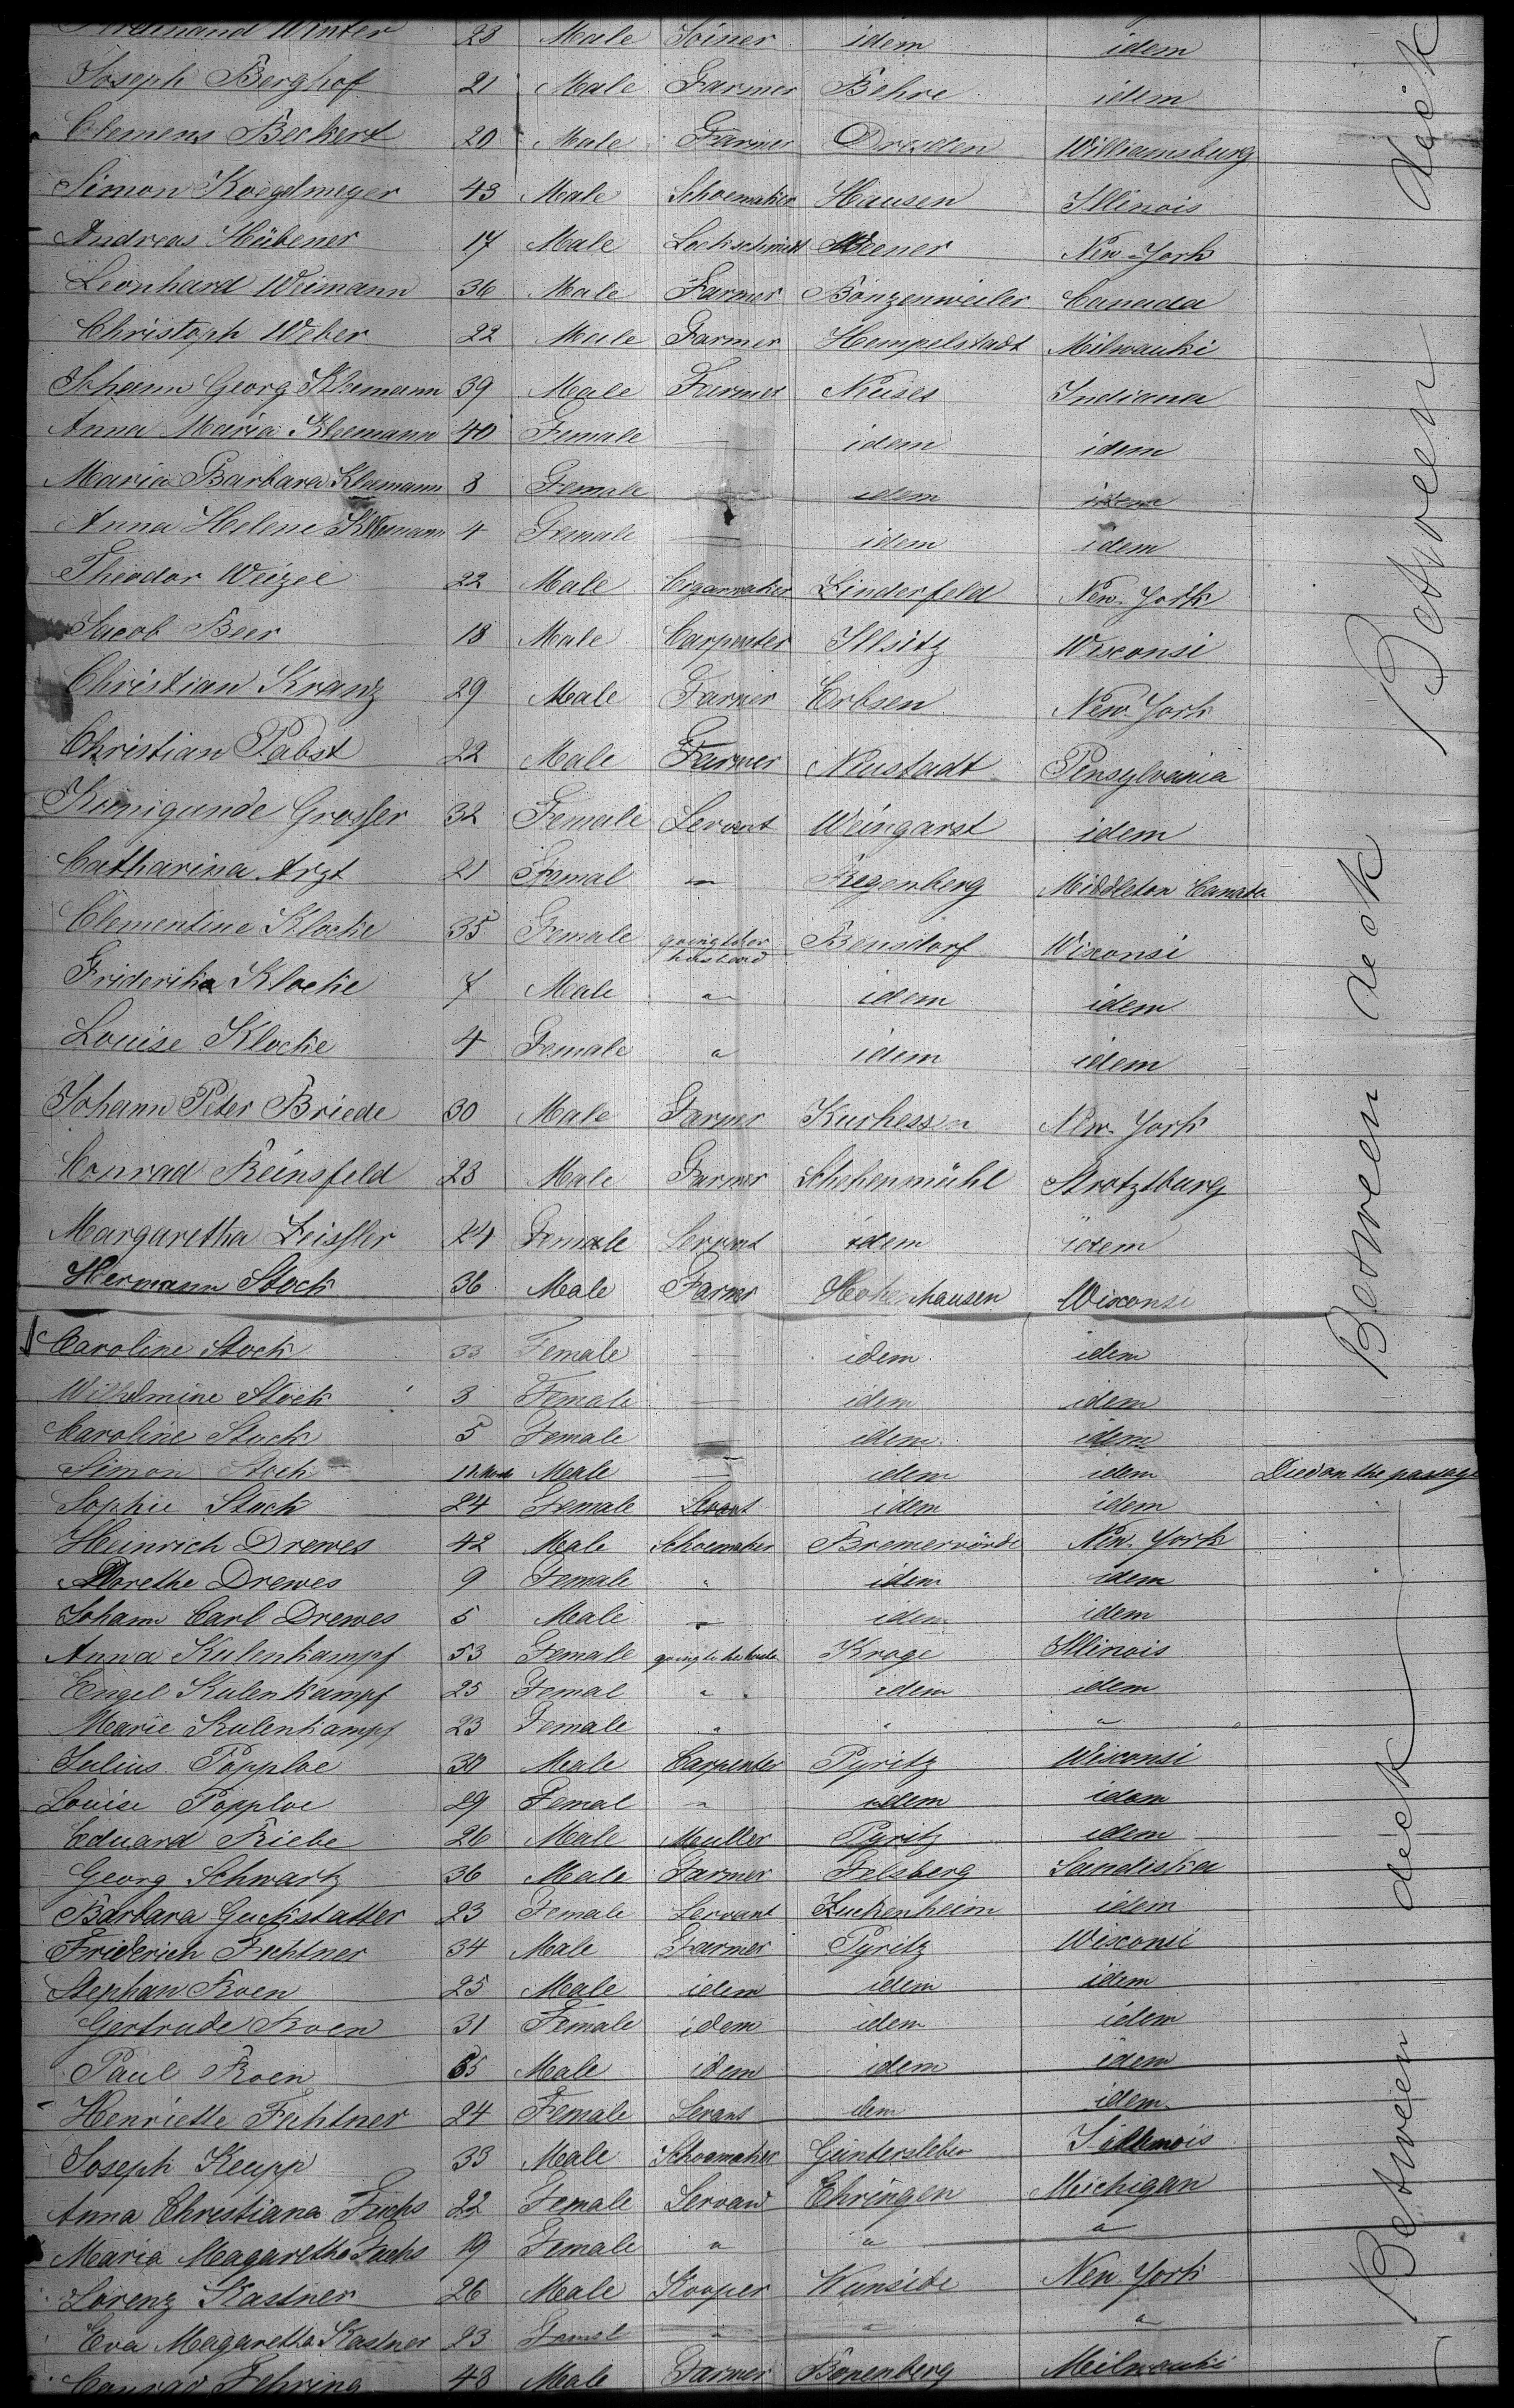 Ferdinand Winter 23 Male Joiner idem idem
Joseph Berghof 21 Male Farmer Behre idem
Clemens Beckert 20 Male Farmer Dresden Williamsburg
Simon Koegelmeyer 43 Male Schoemaker Hausen Illinois
Andreas Hübener 17 Male Lockschmidt Weener New-York
Leonhard Weimann 36 Male Farmer Bonzenweiler Canada
Christoph Weber 22 Male Farmer Hempelstadt Milwauki
Johann Georg Kleemann 39 Male Farmer Neuses Indiana
Anna Maria Kleemann 40 Female — idem idem
Maria Barbara Kleemann 8 Female — idem idem
Anna Helene Kleemann 4 Female — idem idem
Theodor Weizel 22 Male Cigarmaker Linderfeld New-York
Jacob Beer 18 Male Carpenter Illsitz Wisconsi
Christian Kranz 29 Male Farmer Erbsen New-York
Christian Pabst 22 Male Farmer Neustadt Pensylvania
Kunigunde Grosser 32 Female Servent Weingarst idem
Catharina Arzt 21 Femal " Regenberg Middleton Canada
Clementine Klocke 35 Female going to her husband Bensdorf Wisconsi
Friderika Klocke 7 Male " idem idem
Louise Klocke 4 Female " idem idem
Johann Peter Briede 30 Male Farmer Kurhessen New-York
Conrad Reinsfeld 23 Male Farmer Schehenmühl Strotzburg
Margaretha Leissler 24 Female Servent idem idem
Hermann Stock 36 Male Farmer Hohenhausen Wisconsi
Caroline Stock 33 Female — idem idem
Wilhelmine Stock 8 Female — idem idem
Caroline Stock 5 Female — idem idem
Simon Stock 11 Month Male — idem idem Died on the passage
Sophie Stock 24 Female Servant idem idem
Heinrich Drewes 42 Male Schoemaker Bremervörde New-York
Dorethe Drewes 9 Female " idem idem
Johann Carl Drewes 5 Male " idem idem
Anna Kulenkampf 53 Female going to her Kroge Illinois
Engel Kulenkampf 25 Femal " idem idem
Marie Kulenkampf 23 Female " " "
Julius Popploe 30 Male Carpenter Pyritz Wisconsi
Louise Popploe 29 Femal " idem idem
Eduard Riebe 26 Male Muller Pyritz idem
Georg Schwartz 36 Male Farmer Felsberg Sandiska
Barbara Guckstatter 23 Female Servant Luckenheim idem
Friderich Fechtner 34 Male Farmer Pyritz Wisconsi
Stephan Roen 25 Male idem idem idem
Gertrude Roen 31 Female idem idem idem
Paul Roen 65 Male idem idem idem
Henriette Fechtner 24 Female Servant idem idem
Joseph Keupp 33 Male Schoemaker Güntersleben Illinois
Anna Christiana Fuchs 22 Female Servand Ehringen Michigan
Maria Magaretha Fuchs 19 Female " " "
Lorenz Kastner 26 Male Kooper Wunside New York
Eva Magaretha Kastner 23 Femal " " "
Conrad Fehring 48 Male Farmer Bonenberg Milwauki
Between deck
Between deck
Between deck